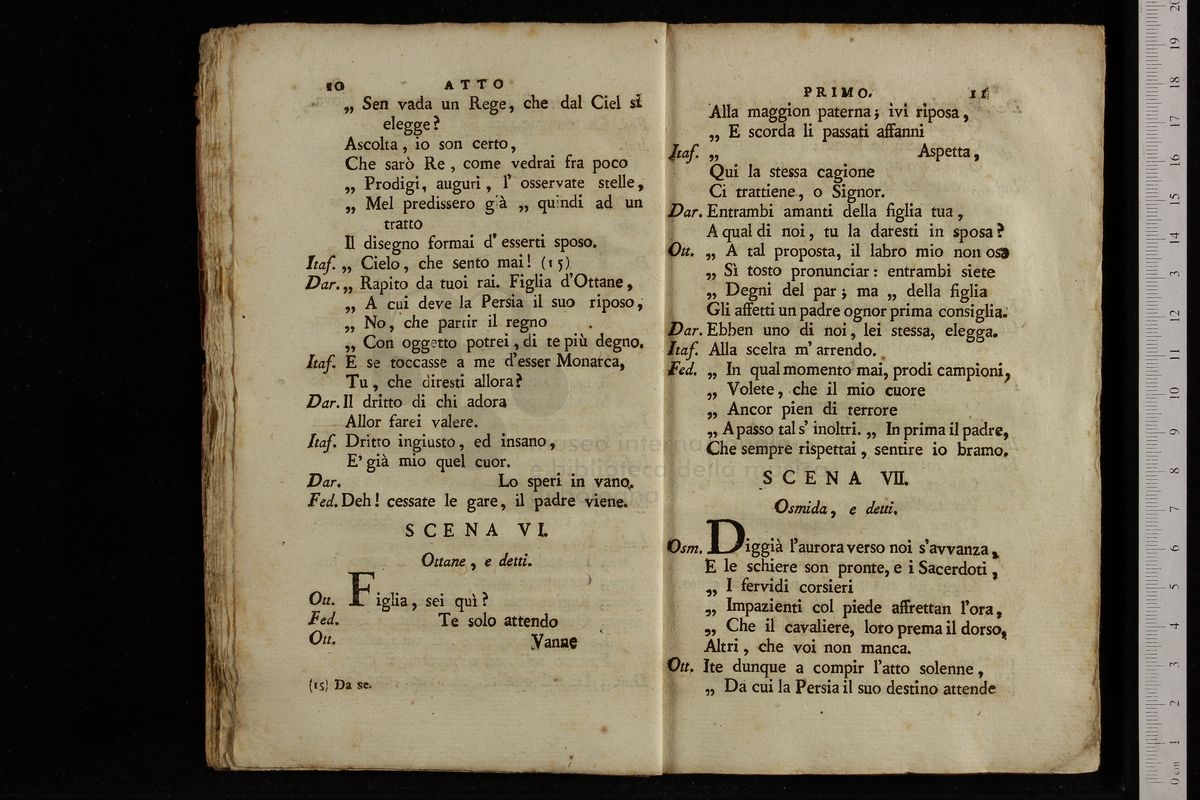 10 ATTO
„ Sen vada un Rege, che dal Ciel si
elegge?
Ascolta, io son certo,
Che sarò Re, come vedrai fra poco
„ Prodigi, auguri, l' osservate stelle,
„ Mel predissero già „ quindi ad un
tratto
Il disegno formai d' esserti sposo.
Itaf. „ Cielo, che sento mai! (15)
Dar. „ Rapito da tuoi rai. Figlia d'Ottane,
„ A cui deve la Persia il suo riposo,
„ No, che partir il regno
„ Con oggetto potrei, di te più degno.
Itaf. E se toccasse a me d'esser Monarca,
Tu, che diresti allora?
Dar. Il dritto di chi adora
Allor farei valere.
Itaf. Dritto ingiusto, ed insano,
E' già mio quel cuor.
Dar. Lo speri in vano.
Fed. Deh! cessate le gare, il padre viene.
SCENA VI.
Ottane, e detti.
Ott. Figlia, sei quì?
Fed. Te solo attendo
Ott. Vanne
(15) Da se.
PRIMO. 11
Alla maggion paterna; ivi riposa,
„ E scorda li passati affanni
Itaf. „ Aspetta,
Qui la stessa cagione
Ci trattiene, o Signor.
Dar. Entrambi amanti della figlia tua,
A qual di noi, tu la daresti in sposa?
Ott. „ A tal proposta, il labro mio non osa
„ Sì tosto pronunciar: entrambi siete
„ Degni del par; ma „ della figlia
Gli affetti un padre ognor prima consiglia.
Dar. Ebben uno di noi, lei stessa, elegga.
Itaf. Alla scelta m' arrendo.
Fed. „ In qual momento mai, prodi campioni,
„ Volete, che il mio cuore
„ Ancor pien di terrore
„ A passo tal s' inoltri. „ In prima il padre,
Che sempre rispettai, sentire io bramo.
SCENA VII.
Osmida, e detti.
Osm. Diggià l'aurora verso noi s'avvanza,
E le schiere son pronte, e i Sacerdoti,
„ I fervidi corsieri
„ Impazienti col piede affrettan l'ora,
„ Che il cavaliere, loro prema il dorso,
Altri, che voi non manca.
Ott. Ite dunque a compir l'atto solenne,
„ Da cui la Persia il suo destino attende